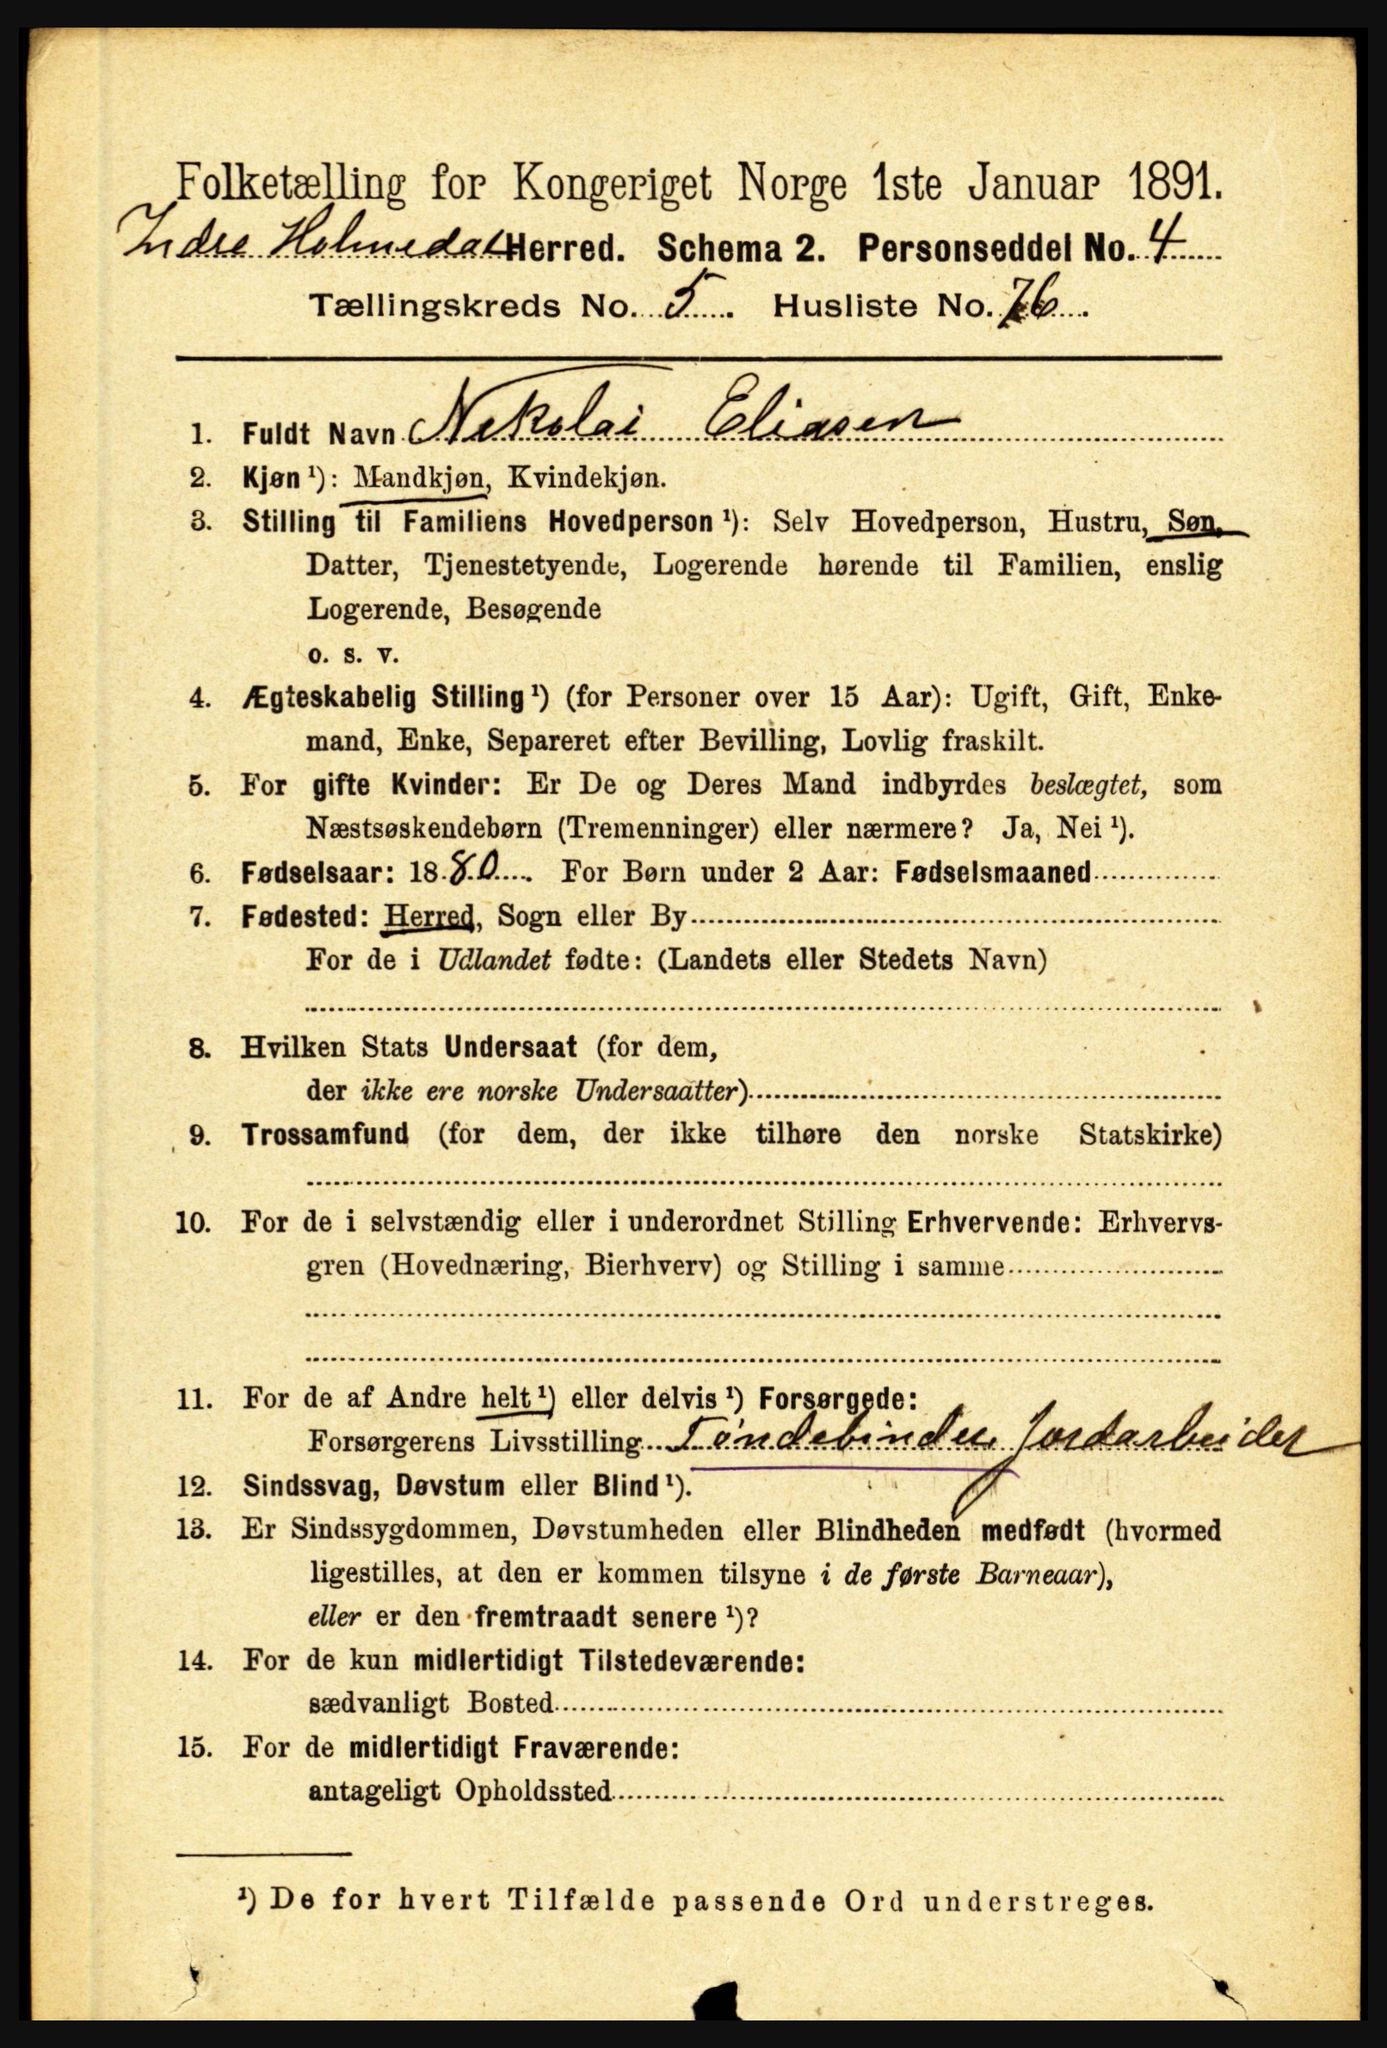 Folketælling for Kongeriget Norge 1ste Januar 1891.
Indre Holmedal Herred. Schema 2. Personseddel No. 4
Tællingskreds No. 5. Husliste No. 76.
1. Fuldt Navn Nikolai Eliasen
2. Kjøn ¹): Mandkjøn, Kvindekjøn.
3. Stilling til Familiens Hovedperson ¹): Selv Hovedperson, Hustru, Søn,
Datter, Tjenestetyende, Logerende hørende til Familien, enslig
Logerende, Besøgende
o. s. v.
4. Ægteskabelig Stilling ¹) (for Personer over 15 Aar): Ugift, Gift, Enke-
mand, Enke, Separeret efter Bevilling, Lovlig fraskilt.
5. For gifte Kvinder: Er De og Deres Mand indbyrdes beslægtet, som
Næstsøskendebørn (Tremenninger) eller nærmere? Ja, Nei ¹).
6. Fødselsaar: 1880. For Børn under 2 Aar: Fødselsmaaned
7. Fødested: Herred, Sogn eller By
For de i Udlandet fødte: (Landets eller Stedets Navn)
8. Hvilken Stats Undersaat (for dem,
der ikke ere norske Undersaatter)
9. Trossamfund (for dem, der ikke tilhøre den norske Statskirke)
10. For de i selvstændig eller i underordnet Stilling Erhvervende: Erhvervs-
gren (Hovednæring, Bierhverv) og Stilling i samme
11. For de af Andre helt ¹) eller delvis ¹) Forsørgede:
Forsørgerens Livsstilling Tøndebinder Jordarbeider
12. Sindssvag, Døvstum eller Blind ¹).
13. Er Sindssygdommen, Døvstumheden eller Blindheden medfødt (hvormed
ligestilles, at den er kommen tilsyne i de første Barneaar),
eller er den fremtraadt senere ¹)?
14. For de kun midlertidigt Tilstedeværende:
sædvanligt Bosted
15. For de midlertidigt Fraværende:
antageligt Opholdssted
¹) De for hvert Tilfælde passende Ord understreges.